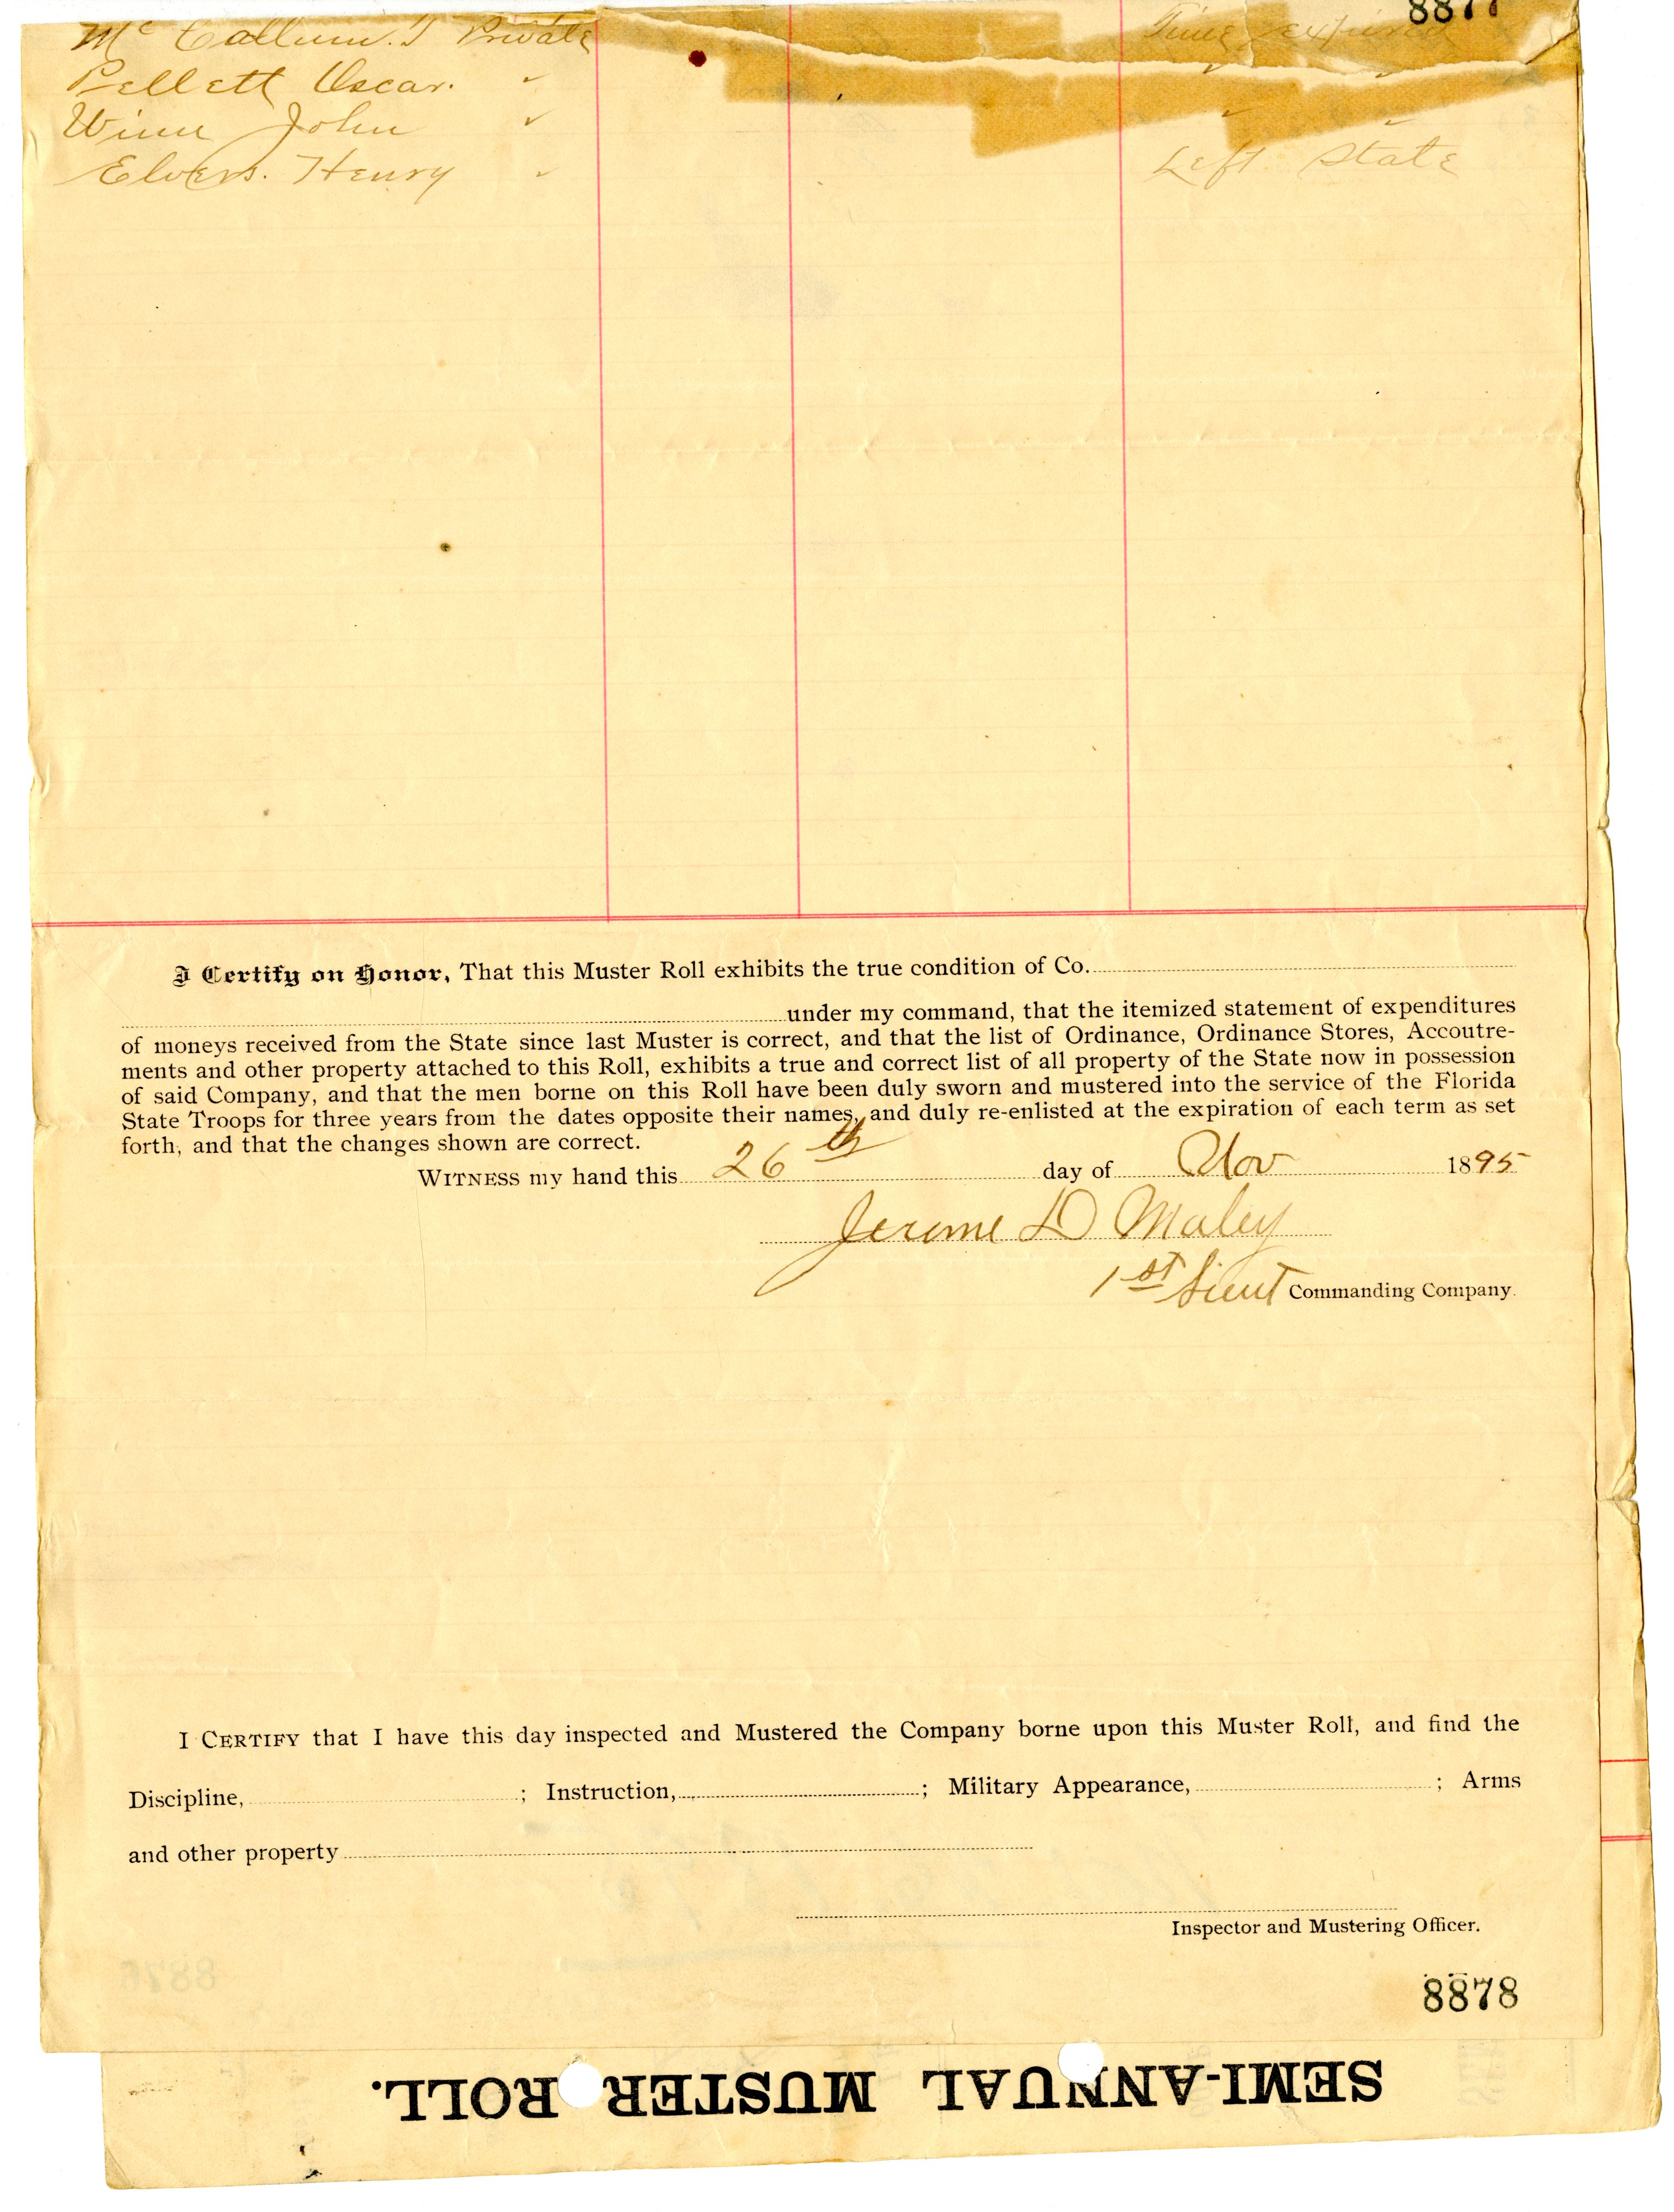 8877
Mc Callum. J Private Time expired
Pellett Oscar. " " "
Winn John " " "
Elvers. Henry " Left State
I Certify on Honor, That this Muster Roll exhibits the true condition of Co.
under my command, that the itemized statement of expenditures
of moneys received from the State since last Muster is correct, and that the list of Ordinance, Ordinance Stores, Accoutre-
ments and other property attached to this Roll, exhibits a true and correct list of all property of the State now in possession
of said Company, and that the men borne on this Roll have been duly sworn and mustered into the service of the Florida
State Troops for three years from the dates opposite their names, and duly re-enlisted at the expiration of each term as set
forth, and that the changes shown are correct.
WITNESS my hand this 26th day of Nov 1895
Jerome D Maley
1st Lieut Commanding Company.
I CERTIFY that I have this day inspected and Mustered the Company borne upon this Muster Roll, and find the
Discipline, ; Instruction, ; Military Appearance, ; Arms
and other property
Inspector and Mustering Officer.
8878
SEMI-ANNUAL MUSTER ROLL.